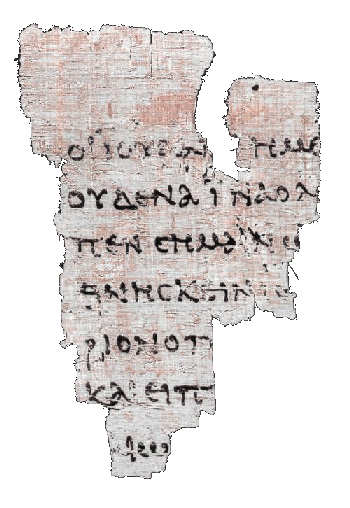 ΟΙΙΟΥΔΑΙ ΗΜΕ
ΟΥΔΕΝΑΙΝΑΟΛ
ΠΕΝϹΗΜΑΙΝΩ
ΘΝΗϹΚΕΙΝΙϹ
ΡΙΟΝΟΠ
ΚΑΙΕΙΠ